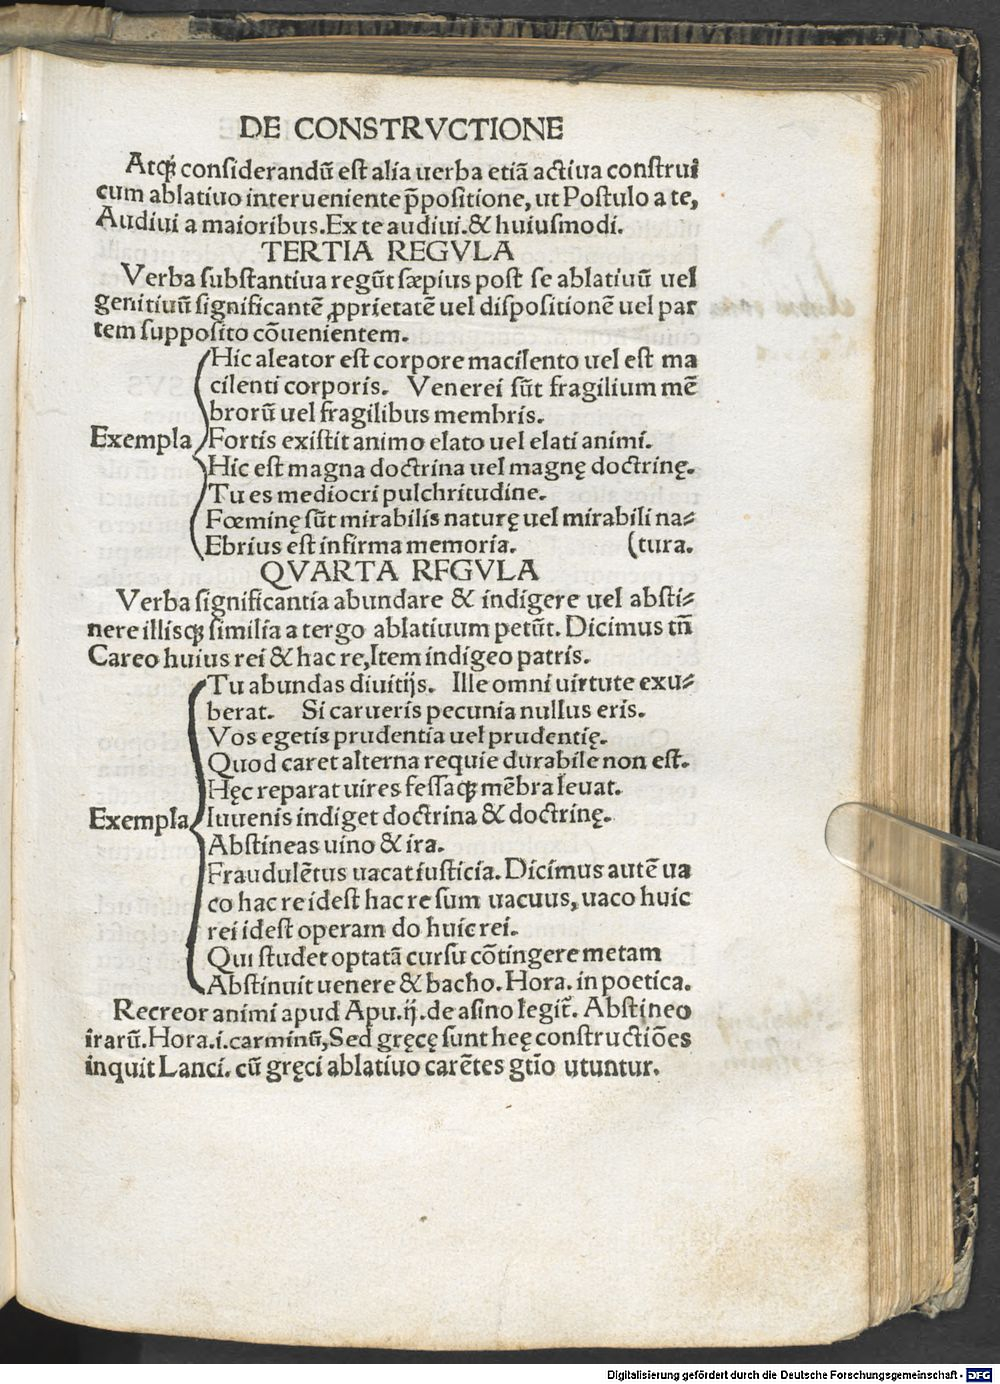 DE CONSTRVCTIONE
Atq; considerandū est alia uerba etiā actiua construi
cum ablatiuo interueniente p̄positione, ut Postulo a te,
Audiui a maioribus. Ex te audiui. & huiusmodi.
TERTIA REGVLA
Verba substantiua regūt sæpius post se ablatiuū uel
genitiuū significantē ꝓprietatē uel dispositionē uel par
tem supposito cōuenientem.
Hic aleator est corpore macilento uel est ma
cilenti corporis. Venerei sūt fragilium mē
brorū uel fragilibus membris.
Exempla Fortis existit animo elato uel elati animi.
Hic est magna doctrina uel magnę doctrinę.
Tu es mediocri pulchritudine.
Fœminę sūt mirabilis naturę uel mirabili na⸗
Ebrius est infirma memoria. (tura.
QVARTA RFGVLA
Verba significantia abundare & indigere uel absti⸗
nere illisq; similia a tergo ablatiuum petūt. Dicimus tn̄
Careo huius rei & hac re, Item indigeo patris.
Tu abundas diuitijs. Ille omni uirtute exu⸗
berat. Si carueris pecunia nullus eris.
Vos egetis prudentia uel prudentię.
Quod caret alterna requie durabile non est.
Hęc reparat uires fessaq; mēbra leuat.
Exempla Iuuenis indiget doctrina & doctrinę.
Abstineas uino & ira.
Fraudulētus uacat iusticia. Dicimus autē ua
co hac re idest hac re sum uacuus, uaco huic
rei idest operam do huic rei.
Qui studet optatā cursu cōtingere metam
Abstinuit uenere & bacho. Hora. in poetica.
Recreor animi apud Apu. ij. de asino legit̄. Abstineo
irarū. Hora. i. carminū, Sed gręcę sunt heę constructiōes
inquit Lanci. cū gręci ablatiuo carētes gtīo utuntur.
Digitalisierung gefördert durch die Deutsche Forschungsgemeinschaft - DFG